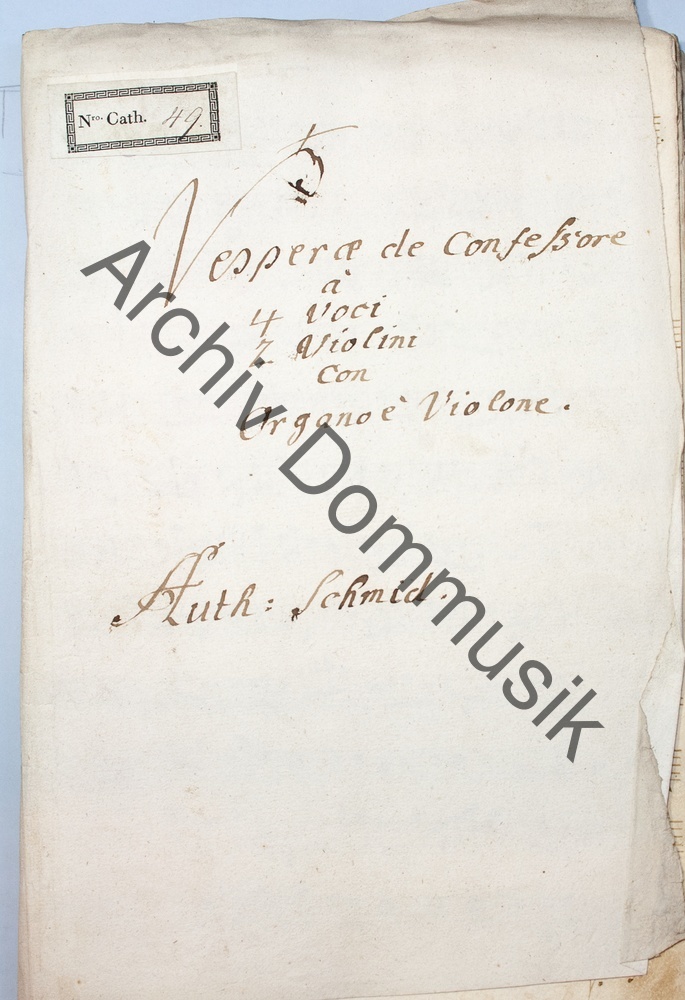 Nro. Cath. 49.
Vesperæ de Confeſsore
à
4 Voci
2 Violini
Con
Organo è Violone.
Auth: Schmid.
Archiv Dommusik